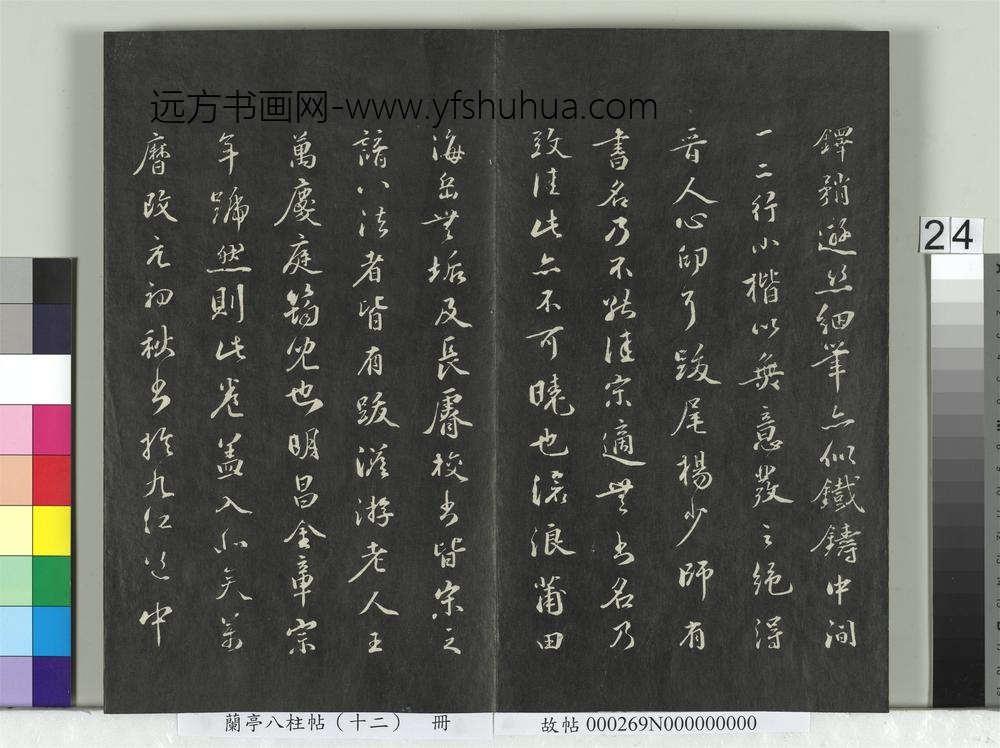 远方书画网-www.yfshuhua.com
鐸稍遊丝細筆亦似鐵鑄中間
一二行小楷以無意發之絕得
晉人心印了跋尾楊少師有
書名乃不能佳宗適無書名乃
致佳此亦不可曉也滄浪莆田
海岳無垢及長睿校書皆宗之
諳八法者皆有跋滋游老人王
萬慶庭筠兒也明昌金章宗
年號然則此卷蓋入北矣萬
曆改元初秋書於九江道中
24
蘭亭八柱帖(十二) 冊
故帖 000269N000000000